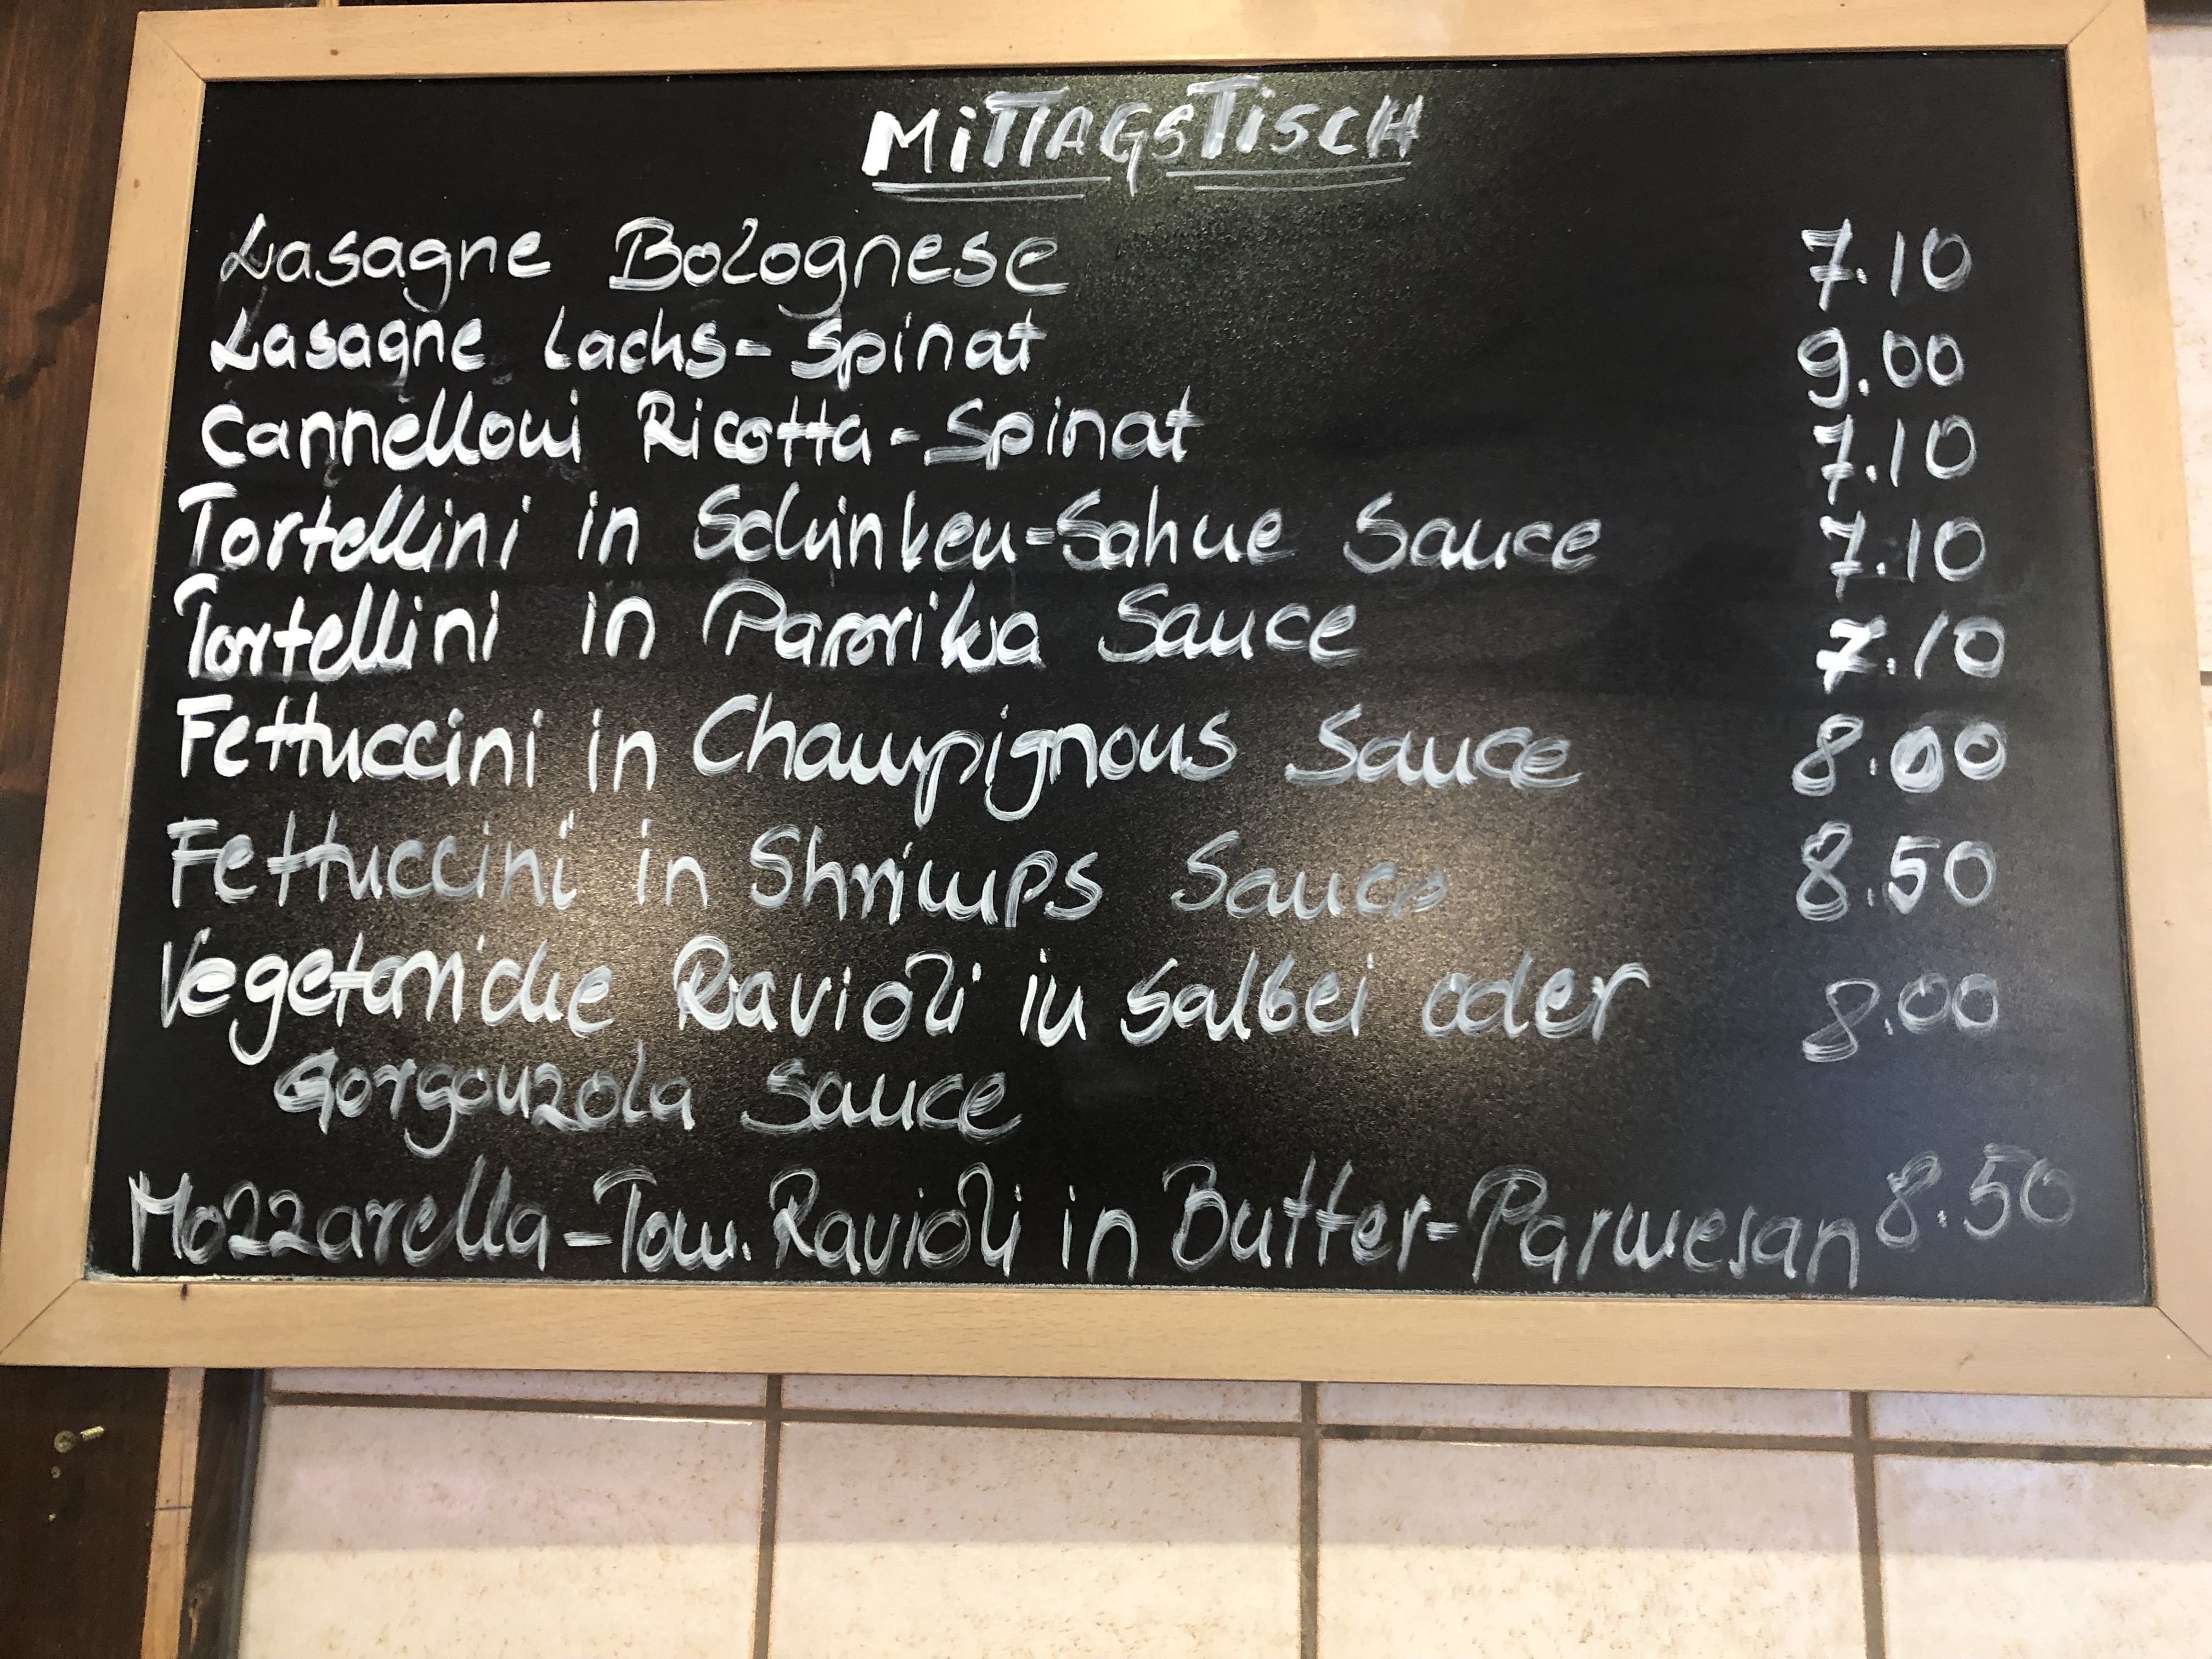 MiTTAGSTiSCH
Lasagne Bolognese 7.10
Lasagne Lachs-Spinat 9.00
Cannelloni Ricotta-Spinat 7.10
Tortellini in Schinken-Sahne Sauce 7.10
Tortellini in Paprika Sauce 7.10
Fettuccini in Champignons Sauce 8.00
Fettuccini in Shrimps Sauce 8.50
Vegetarische Ravioli in Salbei oder 8.00
Gorgonzola Sauce
Mozzarella-Tom. Ravioli in Butter-Parmesan 8.50